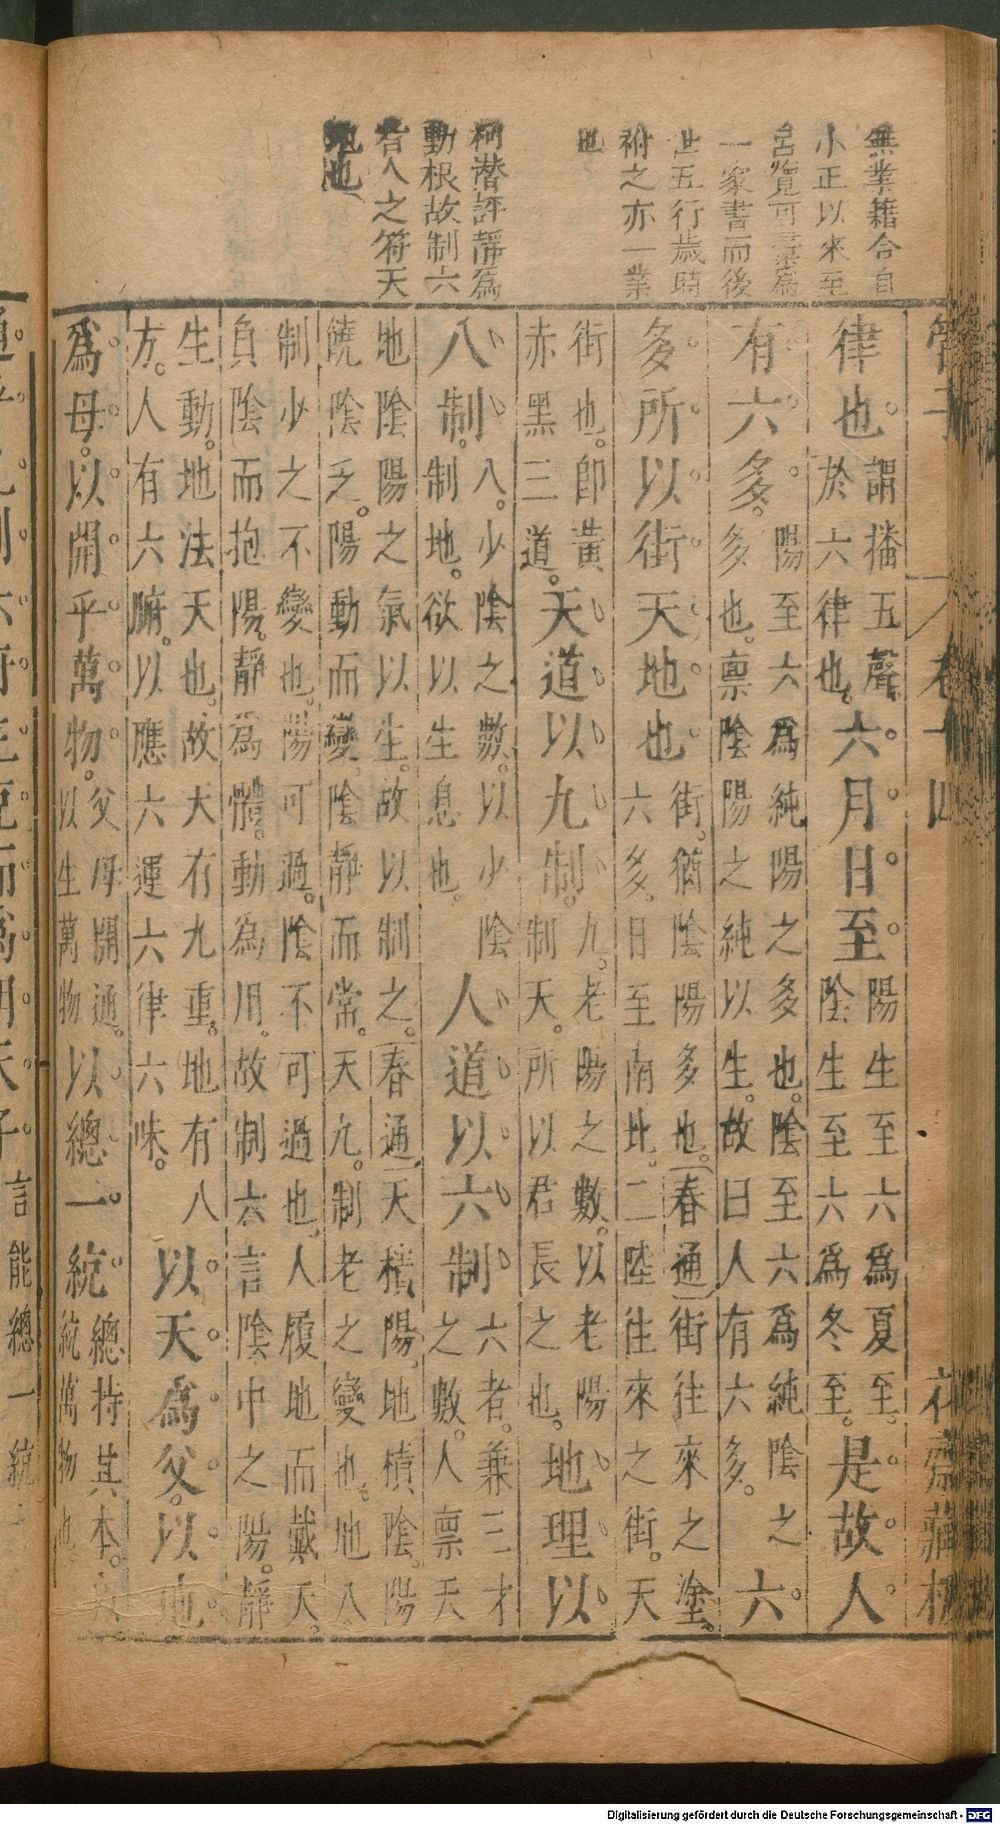 無業籍合自
小正以來至
呂覽可彙為
一家書而後
世五行歲時
附之亦一業
也
柯潜評靜為
動根故制六
者人之符天
地也
管子 卷十四 花齋藏板
律也。謂播五聲於六律也。六月日至。陽生至六爲夏至。陰生至六爲冬至。是故人
有六多。陽至六爲純陽之多也。陰至六爲純陰之多也。禀陰陽之純以生。故曰人有六多。六
多。所以街天地也街。猶陰陽多也。(春通)街往來之塗。六多。日至南北。二陸往來之街。天
街也。即黃赤黑三道。天道以九制。九。老陽之數。以老陽制天。所以君長之也。地理以
八制。八。少陰之數。以少陰制地。欲以生息也。人道以六制。六者。兼三才之數。人禀天
地陰陽之氣以生。故以制之。(春通)天積陽。地積陰。陽饒陰乏。陽動而變。陰靜而常。天九。制老之變也。地八
制少之不變也。陽可過。陰不可過也。人履地而戴天。負陰而抱陽。靜爲體。動爲用。故制六言陰中之陽。靜
生動。地法天也。故天有九重。地有八方。人有六腑。以應六運六律六味。以天爲父。以地
爲母。以開乎萬物。父母開通。以生萬物以總一統。總持其本。統萬物也。
而爲明天子言能總一統
Digitalisierung gefördert durch die Deutsche Forschungsgemeinschaft - DFG